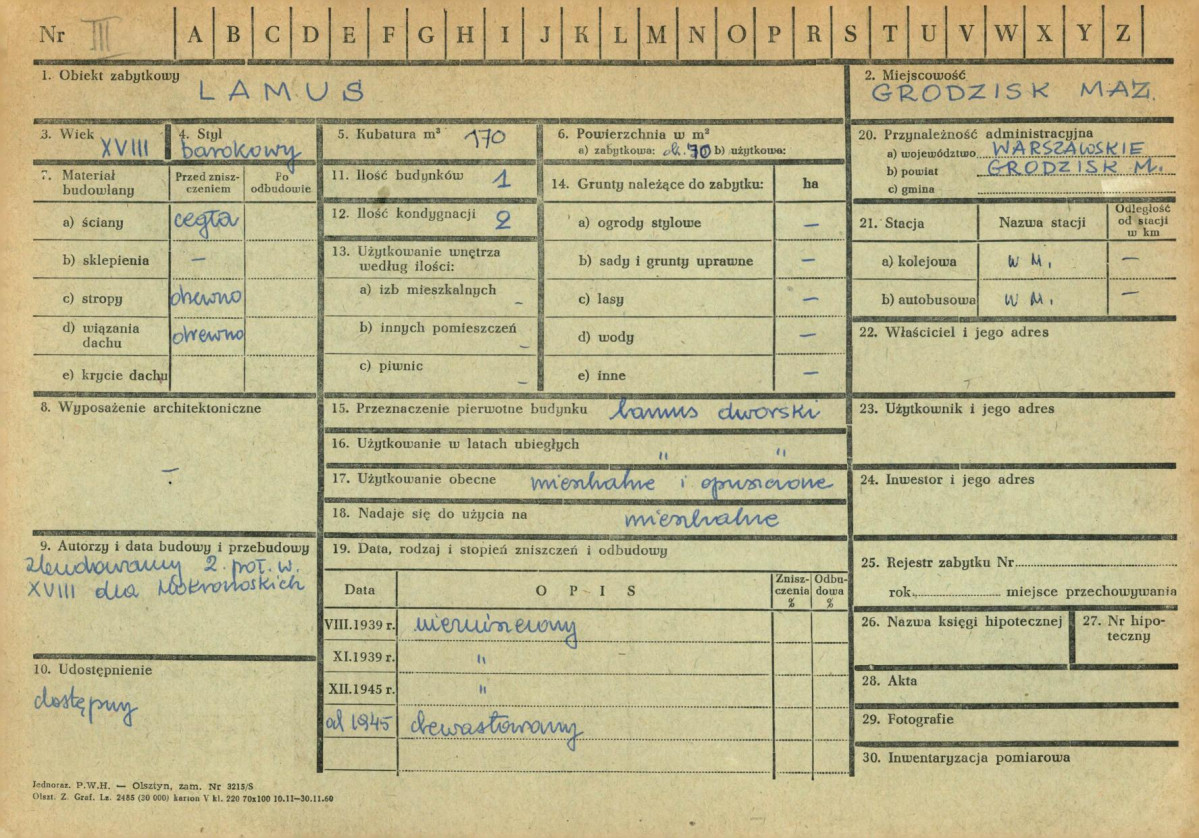 Nr III A B C D E F G H I J K L M N O P R S T U V W X Y Z
1. Obiekt zabytkowy
LAMUS
2. Miejscowość
GRODZISK MAZ.
3. Wiek
XVIII
4. Styl
barokowy
5. Kubatura m³ 170
6. Powierzchnia w m²
a) zabytkowa: ok. 70 b) użytkowa:
7. Materiał budowlany
Przed znisz-
czeniem
Po
odbudowie
a) ściany cegła
b) sklepienia –
c) stropy drewno
d) wiązania
dachu drewno
e) krycie dachu
8. Wyposażenie architektoniczne
–
9. Autorzy i data budowy i przebudowy
zbudowany 2. poł. w.
XVIII dla Mokronoskich
10. Udostępnienie
dostępny
11. Ilość budynków 1
12. Ilość kondygnacji 2
13. Użytkowanie wnętrza
według ilości:
a) izb mieszkalnych –
b) innych pomieszczeń –
c) piwnic –
14. Grunty należące do zabytku: ha
a) ogrody stylowe –
b) sady i grunty uprawne –
c) lasy –
d) wody –
e) inne –
15. Przeznaczenie pierwotne budynku lamus dworski
16. Użytkowanie w latach ubiegłych " "
17. Użytkowanie obecne mieszkalne i opuszczone
18. Nadaje się do użycia na mieszkalne
19. Data, rodzaj i stopień zniszczeń i odbudowy
Data OPIS
Znisz-
czenia
%
Odbu-
dowa
%
VIII.1939 r. niezniszczony
XI.1939 r. "
XII.1945 r. "
od 1945 dewastowany
20. Przynależność administracyjna
a) województwo WARSZAWSKIE
b) powiat GRODZISK M.
c) gmina
21. Stacja Nazwa stacji
Odległość
od stacji
w km
a) kolejowa w M. –
b) autobusowa w M. –
22. Właściciel i jego adres
23. Użytkownik i jego adres
24. Inwestor i jego adres
25. Rejestr zabytku Nr
rok miejsce przechowywania
26. Nazwa księgi hipotecznej
27. Nr hipo-
teczny
28. Akta
29. Fotografie
30. Inwentaryzacja pomiarowa
Jednoraz. P.W.H. — Olsztyn, zam. Nr 3215/S
Olszt. Z. Graf. Lz. 2485 (30 000) karton V kl. 220 70x100 10.11—30.11.60